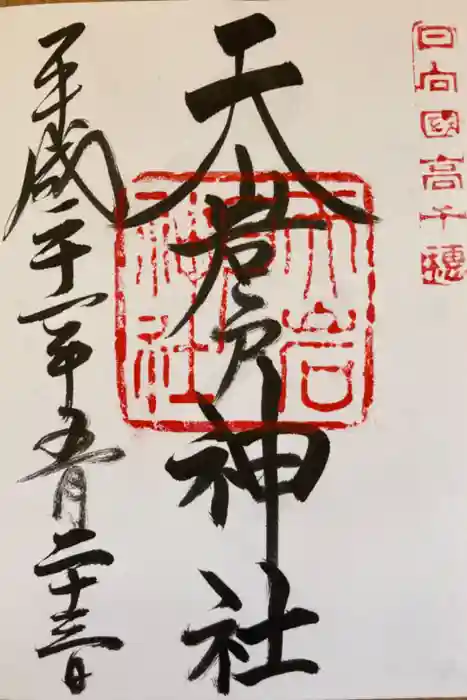 日向國高千穗
天岩戸神社
天岩戸神社
平成二十一年五月二十三日